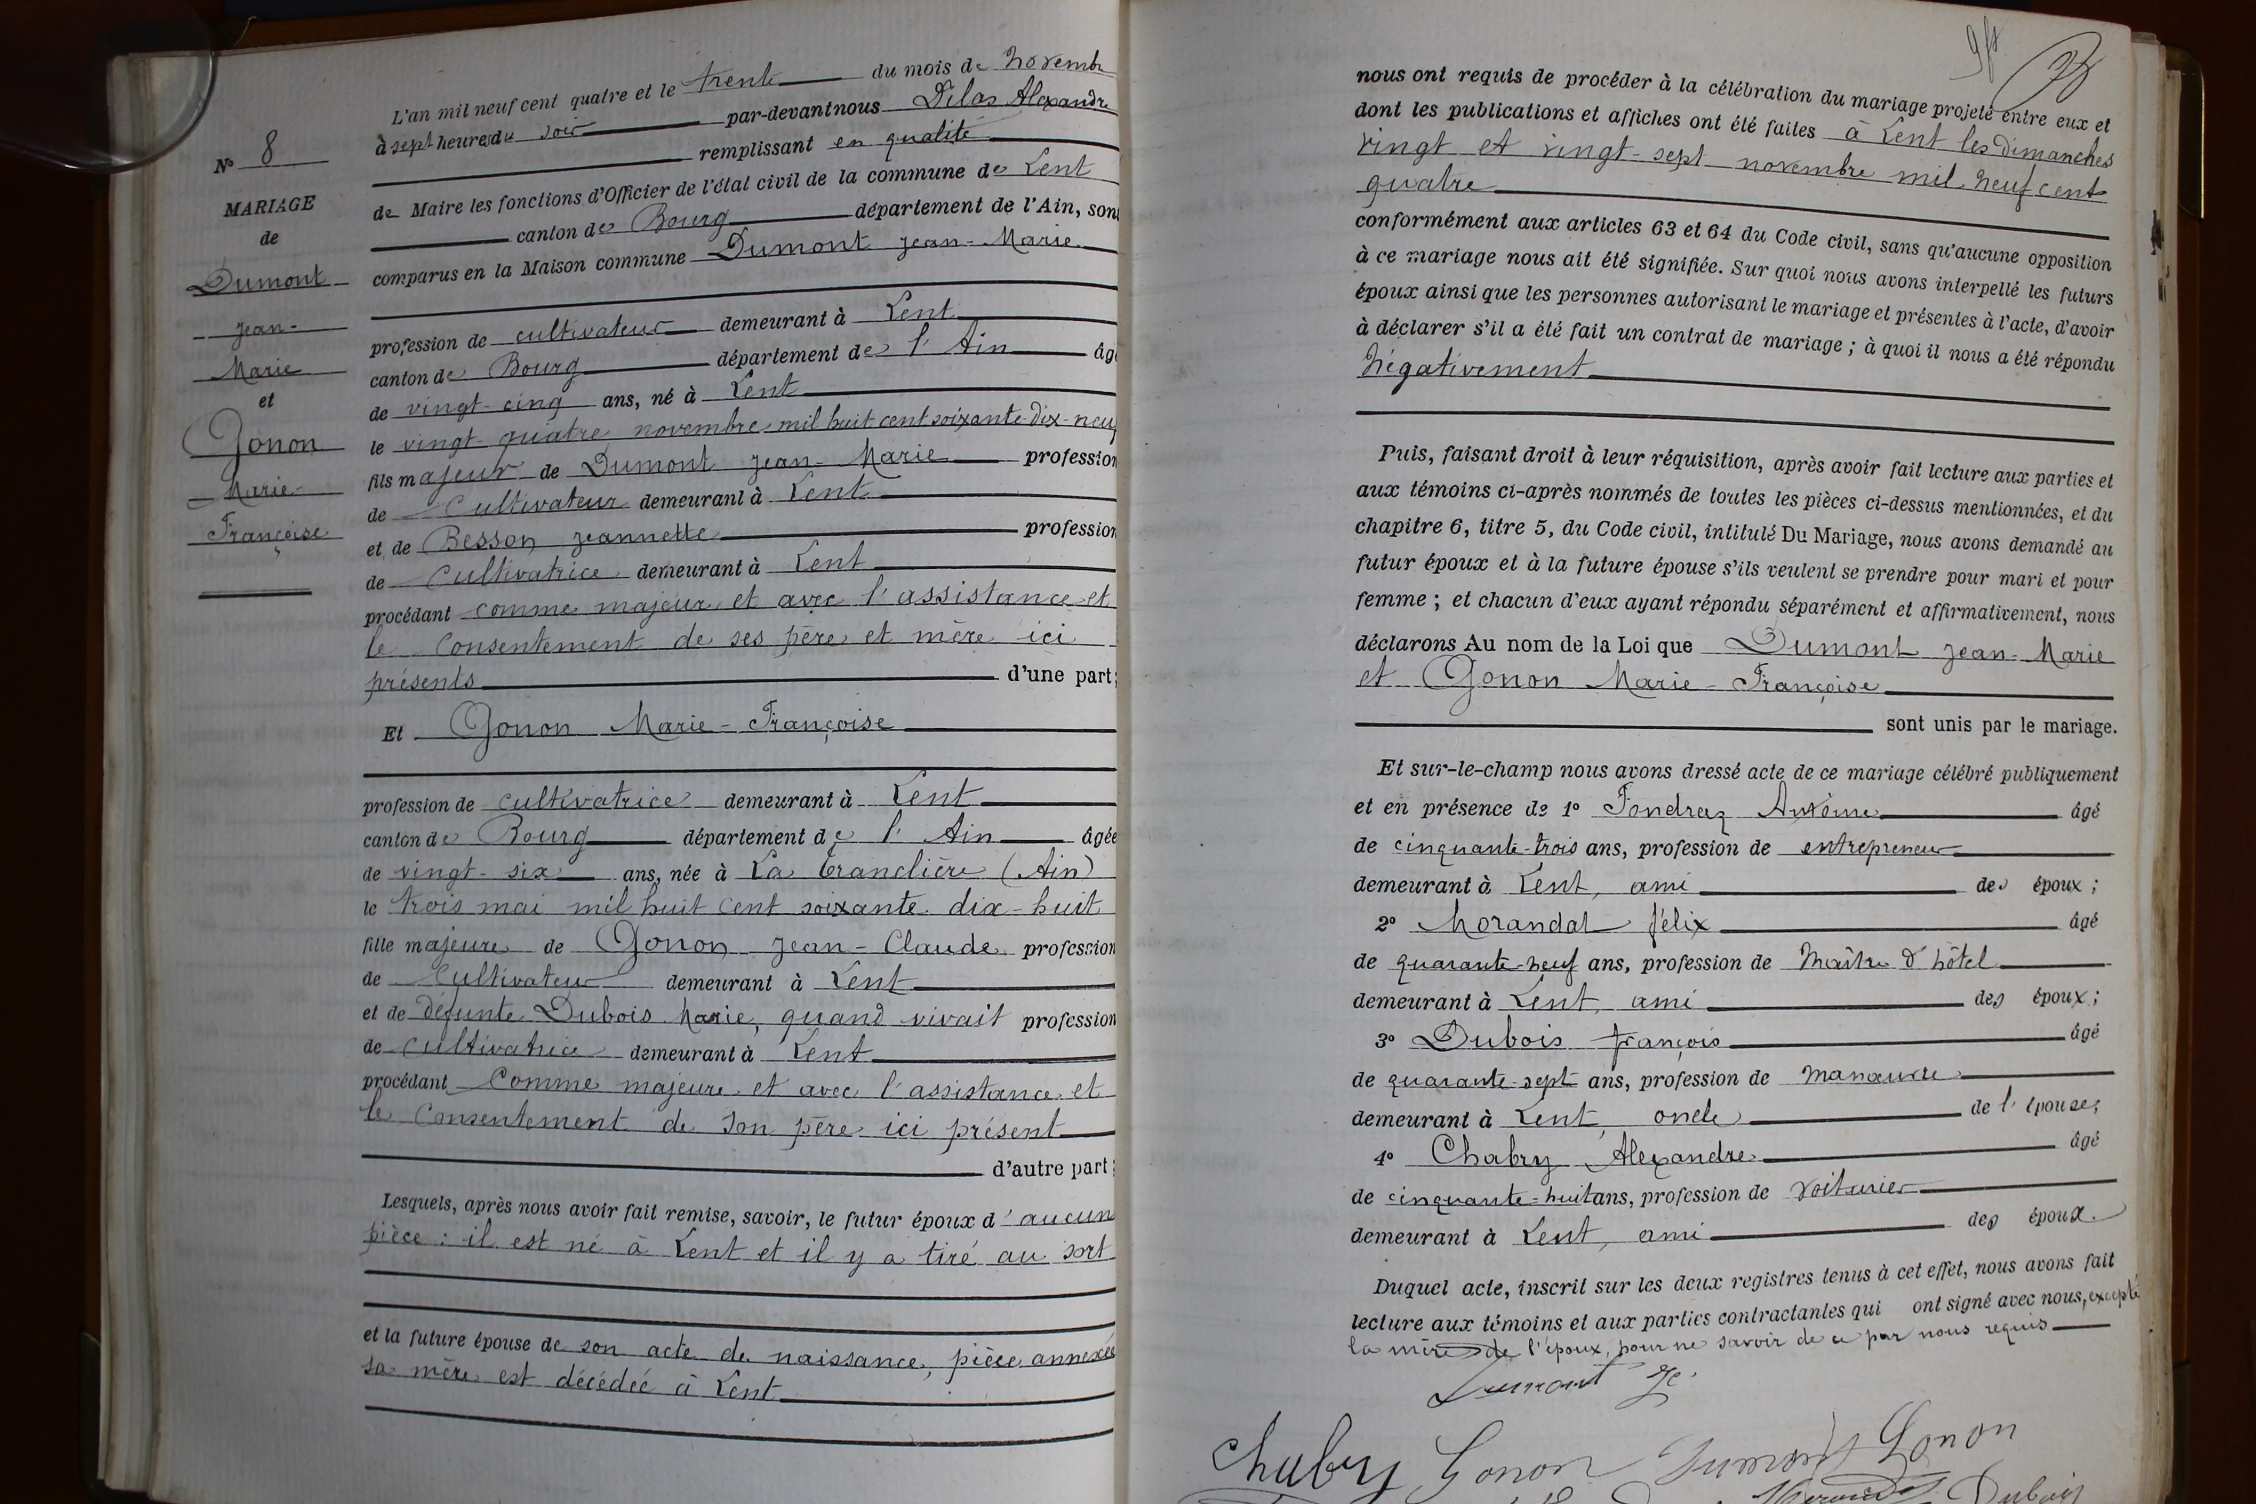 N° 8
MARIAGE
de
Dumont
Jean-
Marie
et
Gonon
Marie-
Françoise
L'an mil neuf cent quatre et le trente du mois de Novembre
à sept heures du soir par-devant nous Delas Alexandre
remplissant en qualité
de Maire les fonctions d'Officier de l'état civil de la commune de Lent
canton de Bourg département de l'Ain, sont
comparus en la Maison commune Dumont Jean-Marie
profession de cultivateur demeurant à Lent
canton de Bourg département de l'Ain âgé
de vingt-cinq ans, né à Lent
le vingt-quatre novembre mil huit cent soixante-dix-neuf
fils majeur de Dumont Jean-Marie profession
de cultivateur demeurant à Lent
et de Besson Jeannette profession
de cultivatrice demeurant à Lent
procédant comme majeur et avec l'assistance et
le consentement de ses père et mère ici
présents d'une part;
Et Gonon Marie-Françoise
profession de cultivatrice demeurant à Lent
canton de Bourg département de l'Ain âgée
de vingt-six ans, née à La Tranclière (Ain)
le trois mai mil huit cent soixante-dix-huit
fille majeure de Gonon Jean-Claude profession
de cultivateur demeurant à Lent
et de défunte Dubois Marie, quand vivait profession
de cultivatrice demeurant à Lent
procédant comme majeure et avec l'assistance et
le consentement de son père ici présent
d'autre part;
Lesquels, après nous avoir fait remise, savoir, le futur époux d'aucune
pièce: il est né à Lent et il y a tiré au sort
et la future épouse de son acte de naissance, pièce annexée
sa mère est décédée à Lent
nous ont requis de procéder à la célébration du mariage projeté entre eux et
dont les publications et affiches ont été faites à Lent les dimanches
vingt et vingt-sept novembre mil neuf cent
quatre
conformément aux articles 63 et 64 du Code civil, sans qu'aucune opposition
à ce mariage nous ait été signifiée. Sur quoi nous avons interpellé les futurs
époux ainsi que les personnes autorisant le mariage et présentes à l'acte, d'avoir
à déclarer s'il a été fait un contrat de mariage; à quoi il nous a été répondu
négativement
Puis, faisant droit à leur réquisition, après avoir fait lecture aux parties et
aux témoins ci-après nommés de toutes les pièces ci-dessus mentionnées, et du
chapitre 6, titre 5, du Code civil, intitulé Du Mariage, nous avons demandé au
futur époux et à la future épouse s'ils veulent se prendre pour mari et pour
femme; et chacun d'eux ayant répondu séparément et affirmativement, nous
déclarons Au nom de la Loi que Dumont Jean-Marie
et Gonon Marie-Françoise
sont unis par le mariage.
Et sur-le-champ nous avons dressé acte de ce mariage célébré publiquement
et en présence de 1° Fondraz Antoine âgé
de cinquante-trois ans, profession de entrepreneur
demeurant à Lent, ami des époux;
2° Morandat félix âgé
de quarante-neuf ans, profession de Maître d'hôtel
demeurant à Lent, ami des époux;
3° Dubois françois âgé
de quarante-sept ans, profession de manœuvre
demeurant à Lent, oncle de l'épouse;
4° Chabry Alexandre âgé
de cinquante-huit ans, profession de voiturier
demeurant à Lent, ami des époux.
Duquel acte, inscrit sur les deux registres tenus à cet effet, nous avons fait
lecture aux témoins et aux parties contractantes qui ont signé avec nous, excepté
la mère de l'époux, pour ne savoir de ce par nous requis
Dumont
Chabry Gonon Dumont Gonon
Dubois